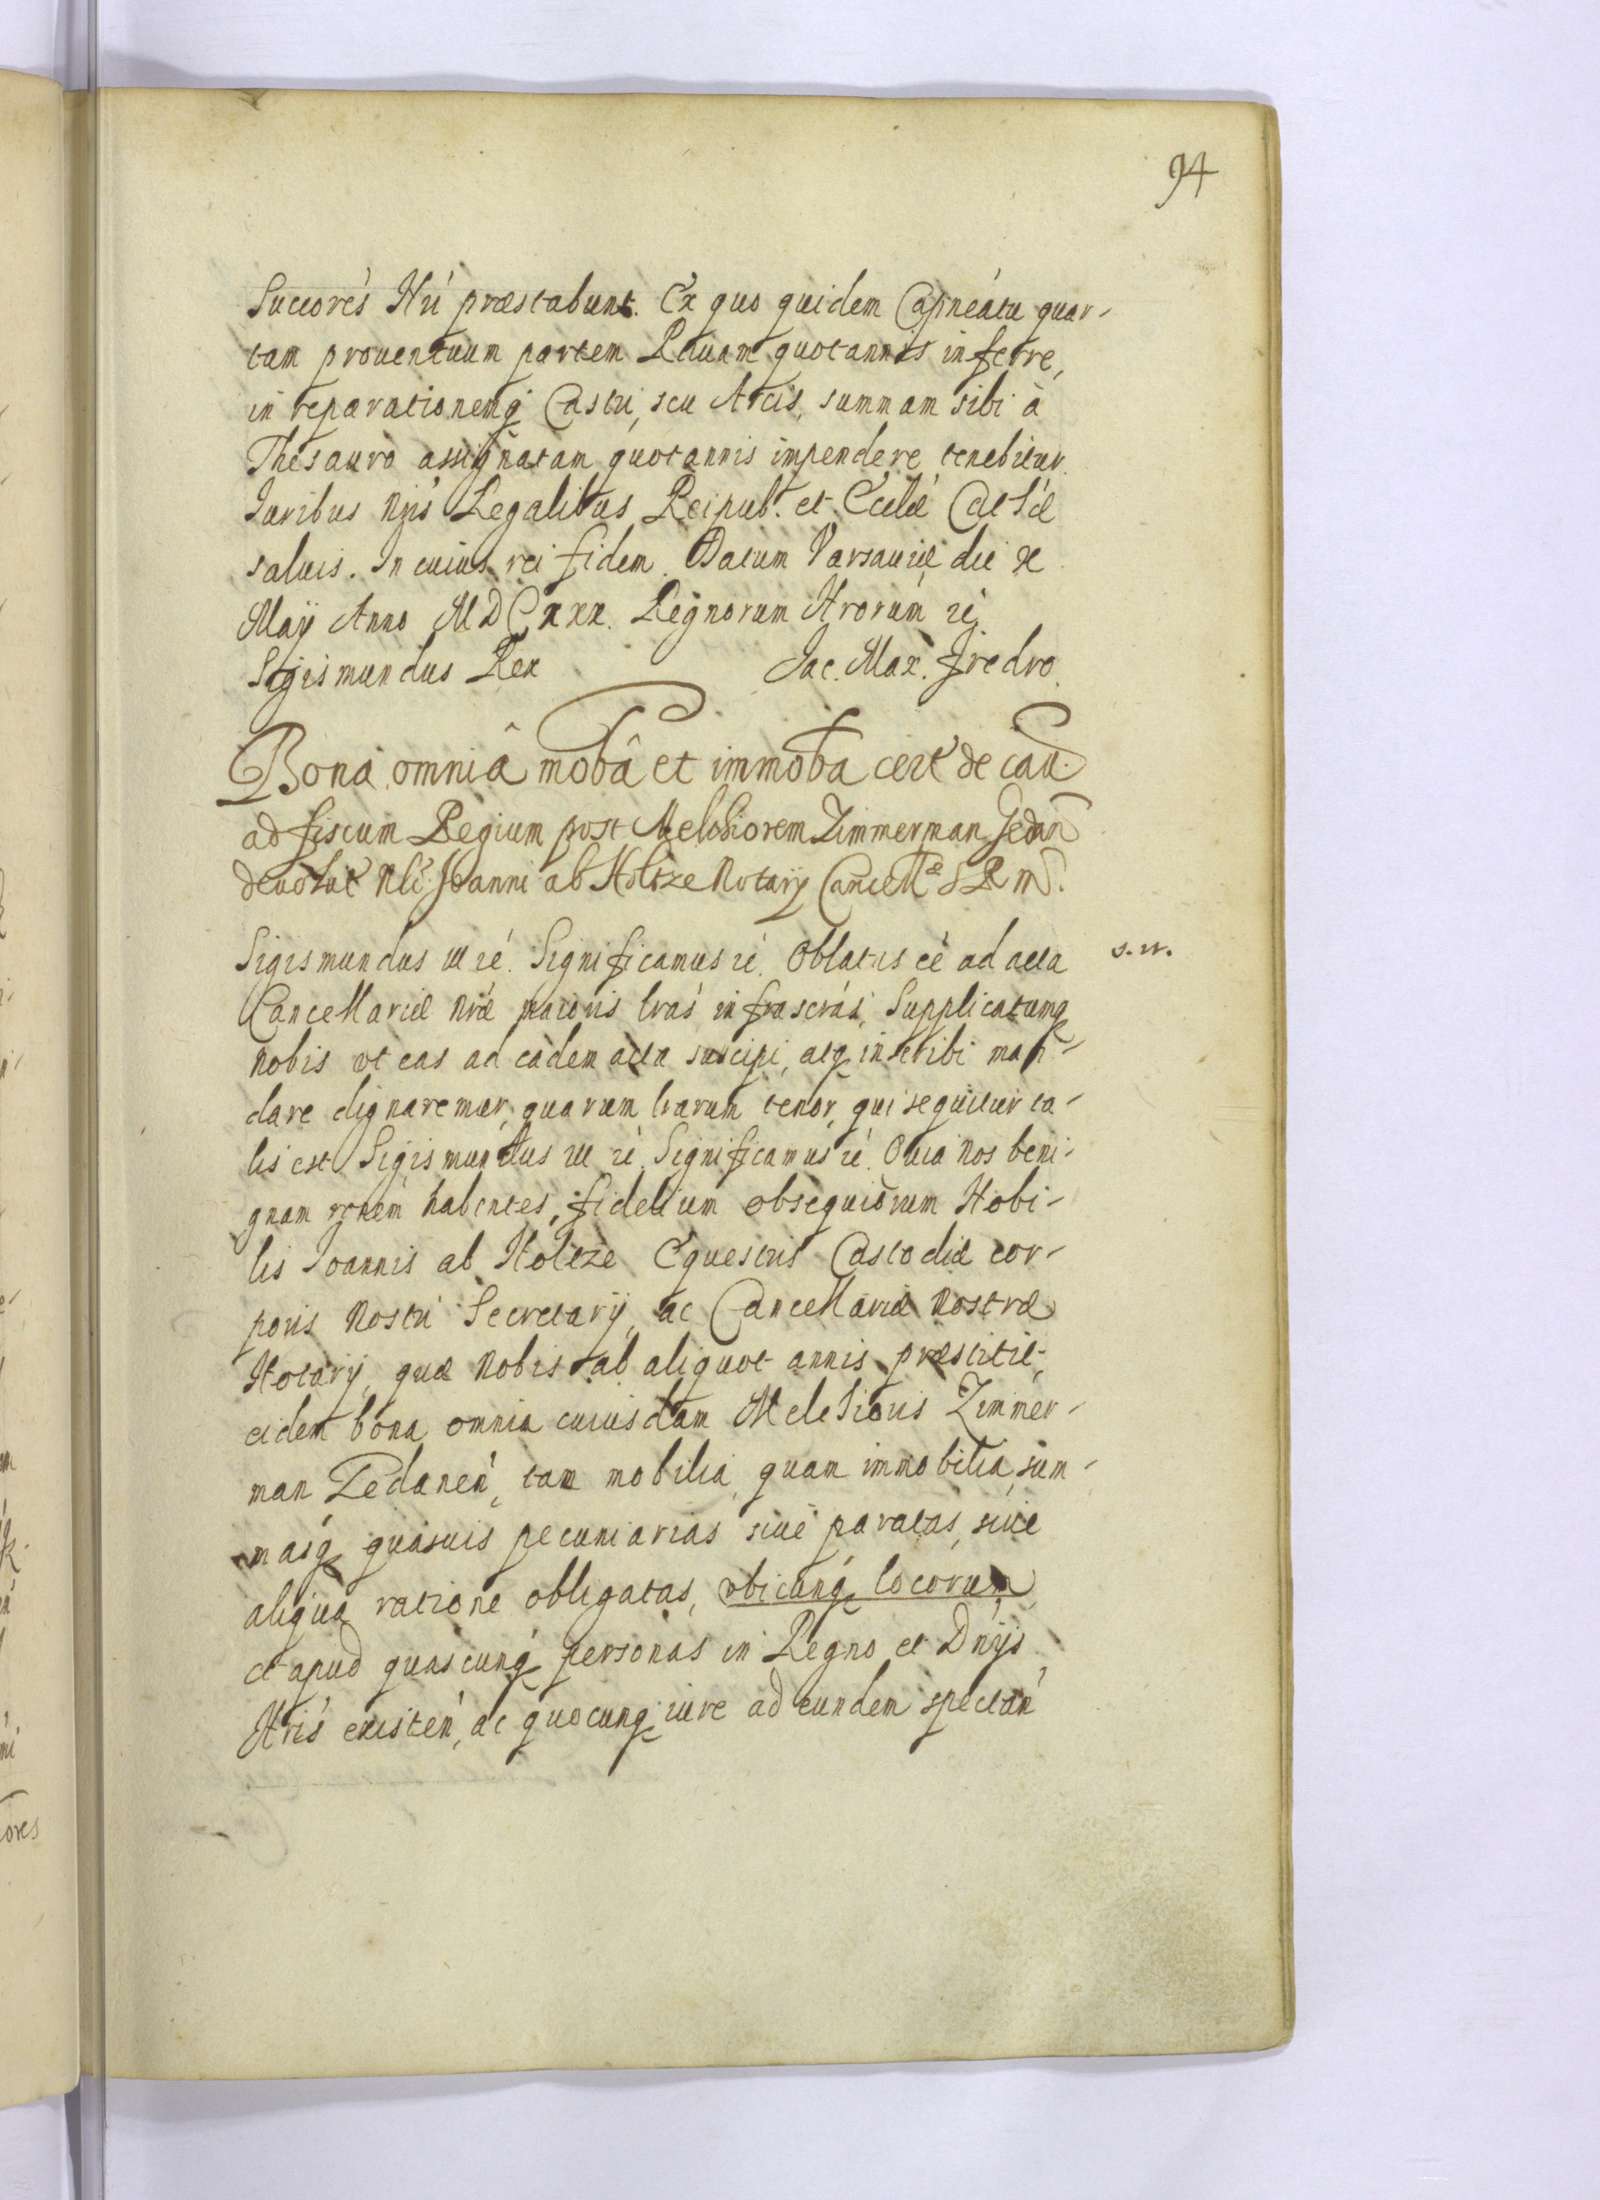 94
Succorés Nri præstabunt. Ex quo quidem Capneátu quar-
tam prouentuum partem Rauam quotannis inferre,
in reparationemq Castri, seu Arcis, summam sibi à
Thesauro assignatam quotannis impendere tenebitur.
Iuribus nris Regalibus Reipub. et Eccliæ Cathæ
saluis. In cuius rei fidem. Datum Varsauiæ die x
Maÿ Anno MDCxxx. Regnorum Nrorum ꝛć
Sigismundus Rex Jac. Max. Fredro.
Bona omnia moba et immoba cert de cau.
ad fiscum Regium post Melchiorem Zimmerman Gedan
deuolut Nli Joanni ab Holtze Notarÿ Cancellæ S R M.
Sigismundus III ꝛć. Significamus ꝛć. Oblatas eé ad acta
s. n.
Cancellariæ nræ maioris lras infrascrás, Supplicatumq
nobis vt eas ad eadem acta suscipi, atq inscribi man-
dare dignaremur, quarum lrarum tenor, qui sequitur ta-
lis est. Sigismundus III ꝛć. Significamus ꝛć. Quia nos beni-
gnam roném habentes, fidelium obsequiorum Nobi-
lis Joannis ab Holtze Equestris Custodiæ cor-
poris Nostri Secretarÿ, ac Cancellariæ nostræ
Notarÿ, quæ nobis ab aliquot annis præstitit,
eidem bona omnia cuiusdam Melchioris Zimmer-
man Gedanen, tam mobilia, quam immobilia, sum-
masq quasuis pecuniarias siue paratas, siue
aliqua ratione obligatas, vbicunq locorum,
et apud quascunq personas in Regno et Dnÿs
Nris existen, ac quocunq iure ad eundem spectan